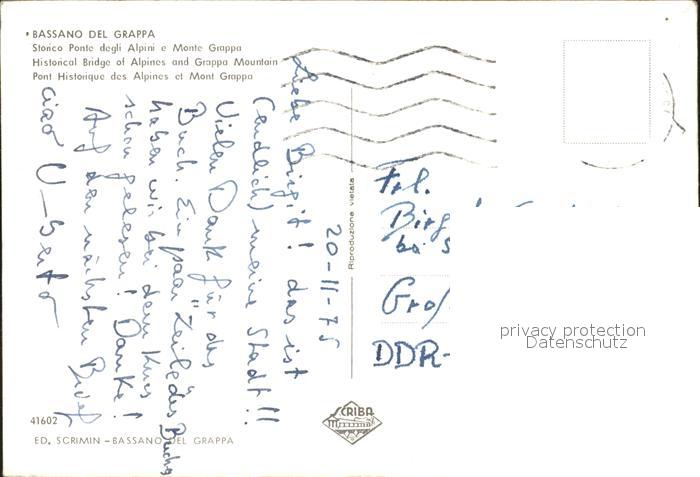 BASSANO DEL GRAPPA
Storico Ponte degli Alpini e Monte Grappa
Historical Bridge of Alpines and Grappa Mountain
Pont Historique des Alpines et Mont Grappa
20-11-75
Liebe Birgit! das ist
(endlich) meine Stadt!!
Vielen Dank für das
Buch. Ein paar Zeile des Buchs
haben wir bei dem Kurs
schon gelesen! Danke!
Auf den nächsten Brief
ciao U-Berto
Riproduzione vietata
Frl.
Birg
bei S
Groß
DDR-
privacy protection
Datenschutz
41602
SCRIBA
ED. SCRIMIN - BASSANO DEL GRAPPA